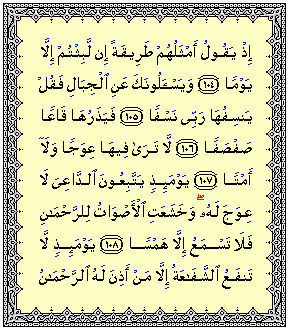 إِذْ يَقُولُ أَمْثَلُهُمْ طَرِيقَةً إِن لَّبِثْتُمْ إِلَّا
يَوْمًا ﴿١٠٤﴾ وَيَسْـَٔلُونَكَ عَنِ ٱلْجِبَالِ فَقُلْ
يَنسِفُهَا رَبِّى نَسْفًا ﴿١٠٥﴾ فَيَذَرُهَا قَاعًا
صَفْصَفًا ﴿١٠٦﴾ لَّا تَرَىٰ فِيهَا عِوَجًا وَلَآ
أَمْتًا ﴿١٠٧﴾ يَوْمَئِذٍ يَتَّبِعُونَ ٱلدَّاعِىَ لَا
عِوَجَ لَهُۥ ۖ وَخَشَعَتِ ٱلْأَصْوَاتُ لِلرَّحْمَـٰنِ
فَلَا تَسْمَعُ إِلَّا هَمْسًا ﴿١٠٨﴾ يَوْمَئِذٍ لَّا
تَنفَعُ ٱلشَّفَـٰعَةُ إِلَّا مَنْ أَذِنَ لَهُ ٱلرَّحْمَـٰنُ